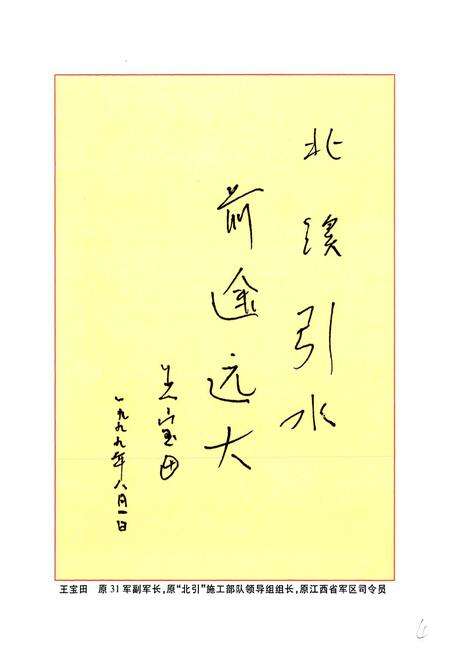 北溪引水
前途远大
王宝田
一九九九年八月一日
王宝田　原31军副军长，原“北引”施工部队领导组组长，原江西省军区司令员